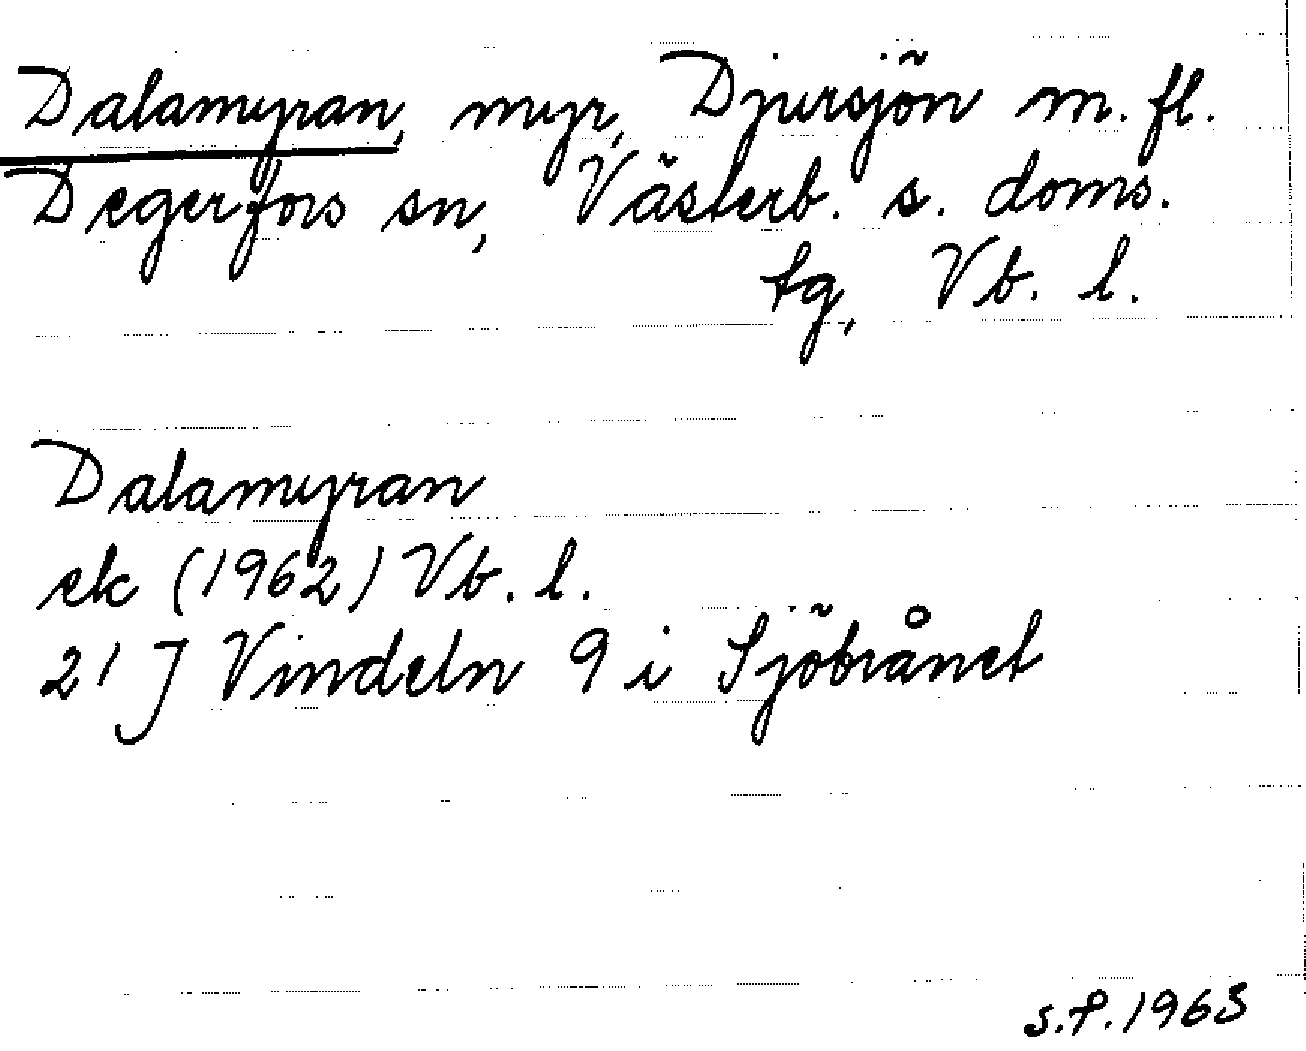 Dalamyran, myr, Djursjön m. fl.
Degerfors sn, Västerb. s. doms.
tg, Vb. l.
Dalamyran
ek (1962) Vb. l.
21 J Vindeln 9 i Sjöbrånet
s.f. 1963